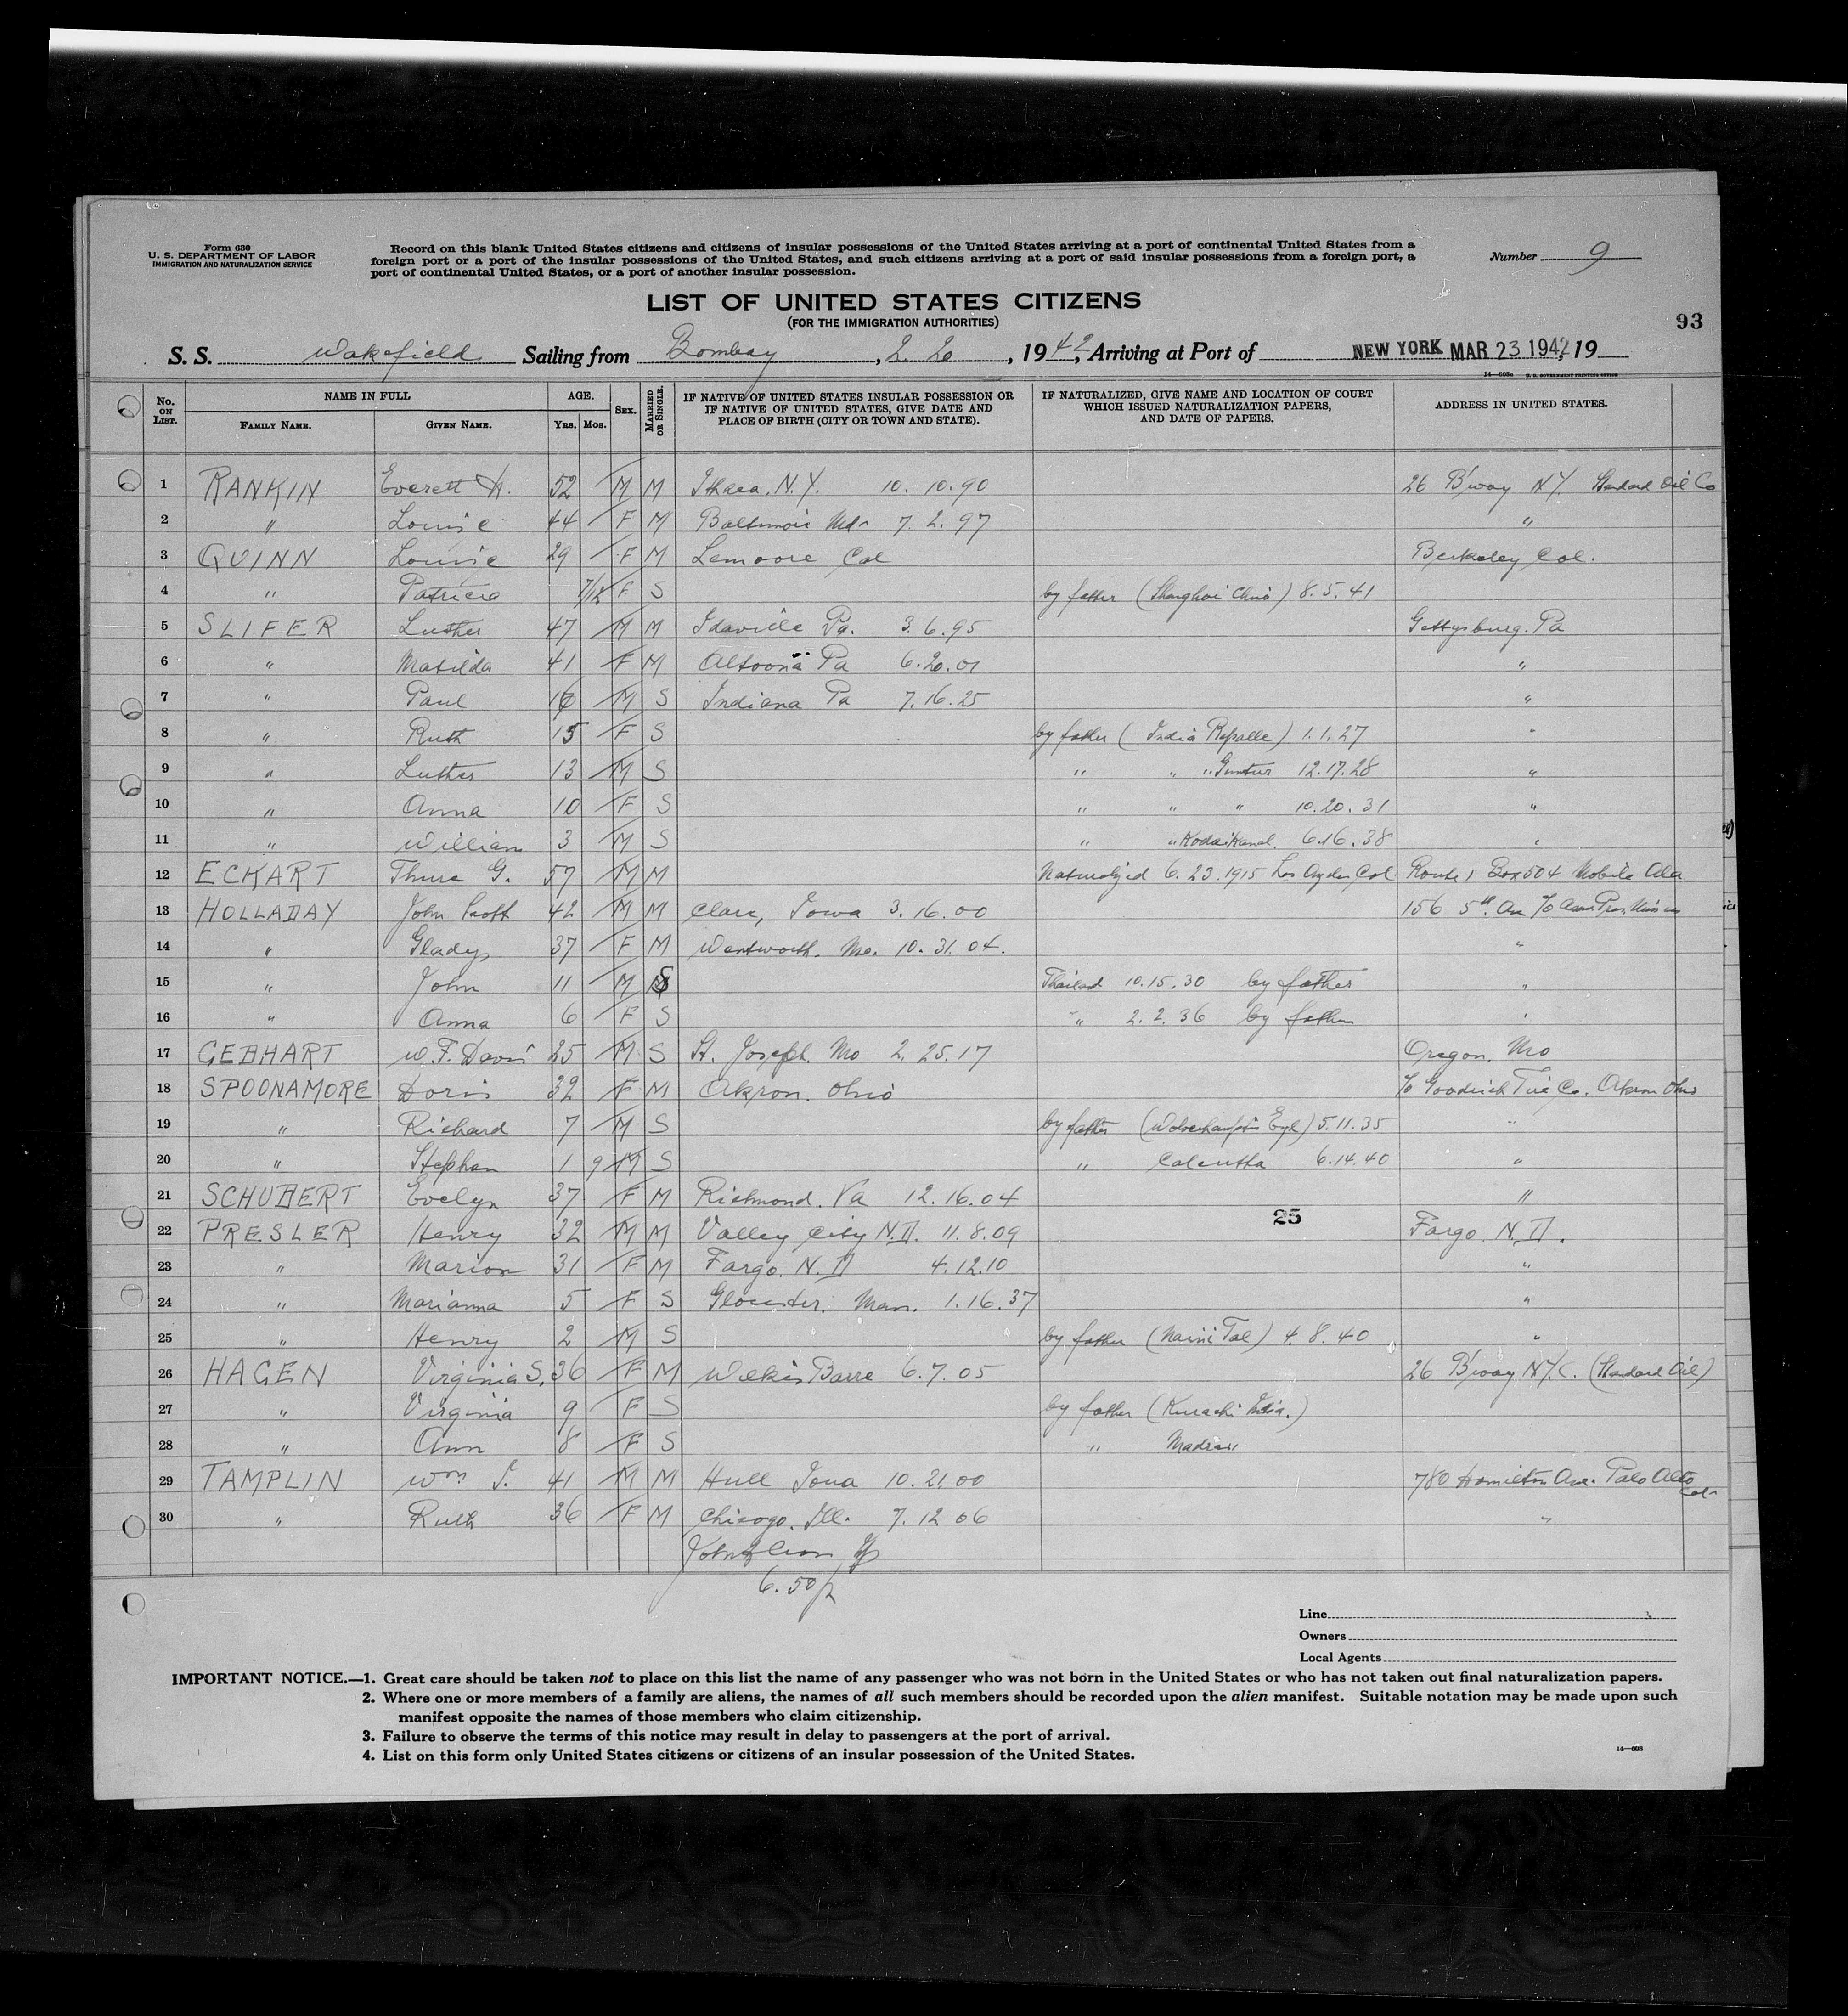 Form 630
U. S. DEPARTMENT OF LABOR
IMMIGRATION AND NATURALIZATION SERVICE
Record on this blank United States citizens and citizens of insular possessions of the United States arriving at a port of continental United States from a
foreign port or a port of the insular possessions of the United States, and such citizens arriving at a port of said insular possessions from a foreign port, a
port of continental United States, or a port of another insular possession.
Number 9
LIST OF UNITED STATES CITIZENS
(FOR THE IMMIGRATION AUTHORITIES)
93
S. S. Wakefield Sailing from Bombay, 2. 20, 1942, Arriving at Port of NEW YORK MAR 23 1942, 19
14—608c U. S. GOVERNMENT PRINTING OFFICE
No. ON LIST. NAME IN FULL AGE. SEX. MARRIED OR SINGLE. IF NATIVE OF UNITED STATES INSULAR POSSESSION OR IF NATIVE OF UNITED STATES, GIVE DATE AND PLACE OF BIRTH (CITY OR TOWN AND STATE). IF NATURALIZED, GIVE NAME AND LOCATION OF COURT WHICH ISSUED NATURALIZATION PAPERS, AND DATE OF PAPERS. ADDRESS IN UNITED STATES.
FAMILY NAME. GIVEN NAME. Yrs. Mos.
1 RANKIN Everett H. 52 M M Ithaca. N.Y. 10. 10. 90 26 B'way N.Y. Standard Oil Co
2 " Louise 44 F M Baltimore Md. 7. 2. 97 "
3 QUINN Louise 29 F M Lemoore Cal Berkeley Cal.
4 " Patricia 7/12 F S by father (Shanghai China) 8. 5. 41
5 SLIFER Luther 47 M M Idaville Pa. 3. 6. 95 Gettysburg. Pa
6 " Matilda 41 F M Altoona Pa 6. 20. 01 "
7 " Paul 16 M S Indiana Pa 7. 16. 25 "
8 " Ruth 15 F S by father (India Repalle) 1. 1. 27 "
9 " Luther 13 M S " " " Guntur 12. 17. 28 "
10 " Anna 10 F S " " " 10. 20. 31 "
11 " William 3 M S " " Kodaikanal. 6. 16. 38 "
12 ECKART Thure G. 57 M M Naturalized 6. 23. 1915 Los Angeles Cal Route 1 Box 504 Mobile Ala
13 HOLLADAY John Scott 42 M M Clare, Iowa 3. 16. 00 156 5th. Ave c/o
14 " Gladys 37 F M Wentworth. Mo. 10. 31. 04. "
15 " John 11 M S Thailand 10. 15. 30 by father "
16 " Anna 6 F S " 2. 2. 36 by father "
17 GEBHART W. F. Davis 25 M S St. Joseph. Mo 2. 25. 17 Oregon. Mo
18 SPOONAMORE Doris 32 F M Akron. Ohio c/o Goodrich Tire Co. Akron Ohio
19 " Richard 7 M S by father (Wolverhampton Engl) 5. 11. 35 "
20 " Stephen 1 9 M S " Calcutta 6. 14. 40 "
21 SCHUBERT Evelyn 37 F M Richmond. Va 12. 16. 04 "
25
22 PRESLER Henry 32 M M Valley City N.D. 11. 8. 09 Fargo. N. D.
23 " Marion 31 F M Fargo. N. D 4. 12. 10 "
24 " Marianna 5 F S Gloucester. Mass. 1. 16. 37 "
25 " Henry 2 M S by father (Naini Tal) 4. 8. 40 "
26 HAGEN Virginia S. 36 F M Wilkes Barre 6. 7. 05 26 B'way N.Y.C. (Standard Oil)
27 " Virginia 9 F S by father (Karachi India.)
28 " Ann 8 F S " Madras
29 TAMPLIN Wm J. 41 M M Hull Iowa 10. 21. 00 780 Hamilton Ave. Palo Alto Cal.
30 " Ruth 36 F M Chicago. Ill. 7. 12 06 "
6. 50
Line
Owners
Local Agents
IMPORTANT NOTICE.—1. Great care should be taken not to place on this list the name of any passenger who was not born in the United States or who has not taken out final naturalization papers.
2. Where one or more members of a family are aliens, the names of all such members should be recorded upon the alien manifest. Suitable notation may be made upon such
manifest opposite the names of those members who claim citizenship.
3. Failure to observe the terms of this notice may result in delay to passengers at the port of arrival.
4. List on this form only United States citizens or citizens of an insular possession of the United States.
14—608